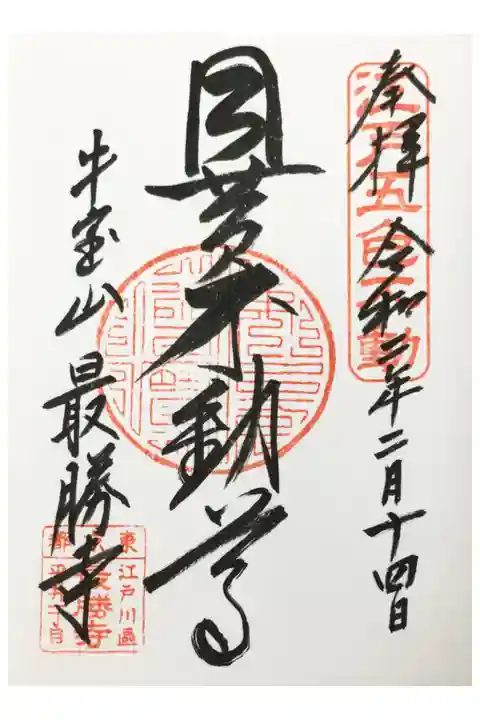 奉拝 令和二年二月十四日
江戸五色不動
目黄不動尊
牛宝山 最勝寺
東江戸川区
最勝寺